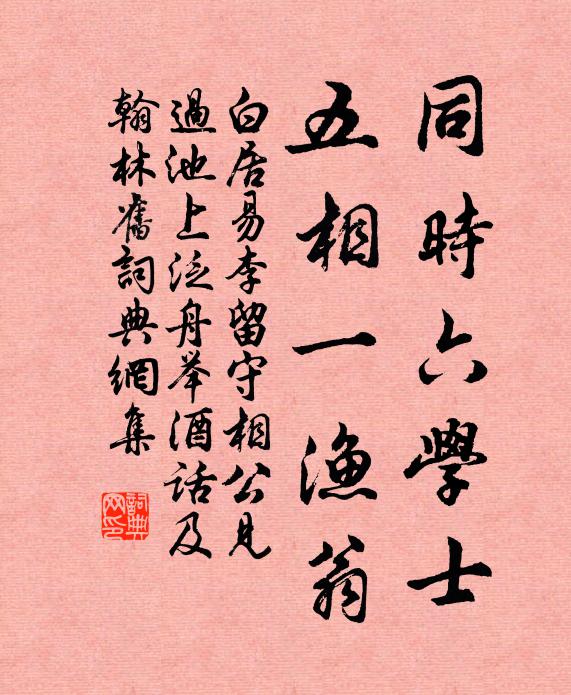 同時六學士
五相一漁翁
白居易李留守相公見
過池上泛舟举酒話及
翰林舊詞典網集
詞典
网印